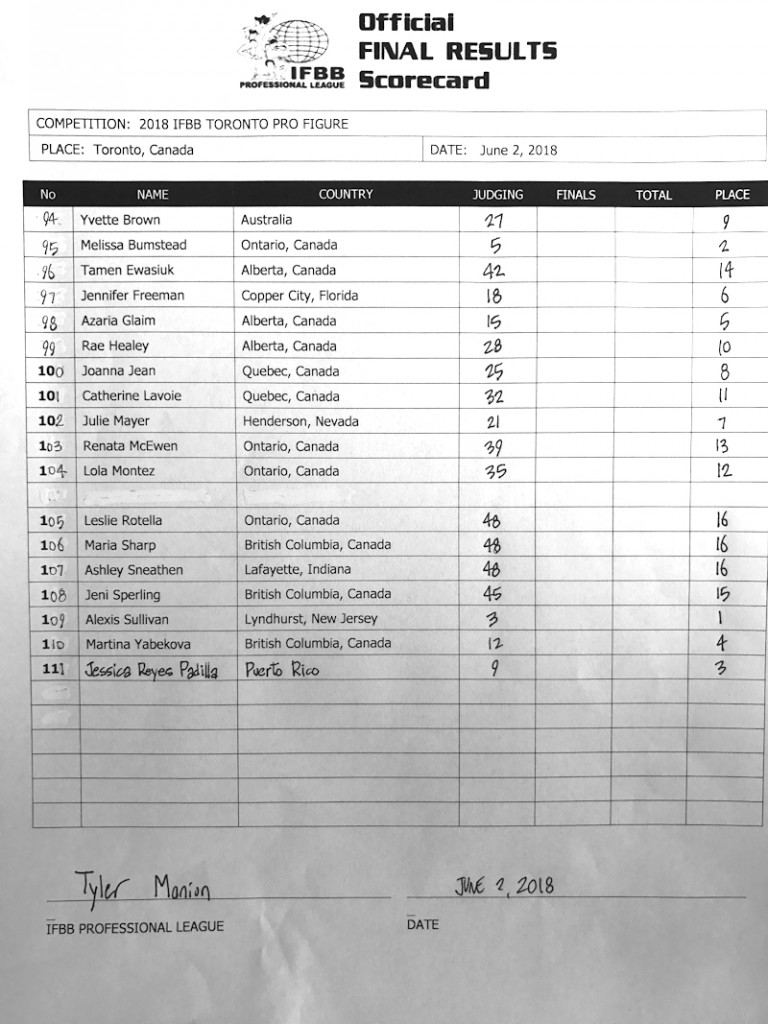 Official
FINAL RESULTS
Scorecard
IFBB
PROFESSIONAL LEAGUE
COMPETITION: 2018 IFBB TORONTO PRO FIGURE
PLACE: Toronto, Canada DATE: June 2, 2018
No NAME COUNTRY JUDGING FINALS TOTAL PLACE
94 Yvette Brown Australia 27 9
95 Melissa Bumstead Ontario, Canada 5 2
96 Tamen Ewasiuk Alberta, Canada 42 14
97 Jennifer Freeman Copper City, Florida 18 6
98 Azaria Glaim Alberta, Canada 15 5
99 Rae Healey Alberta, Canada 28 10
100 Joanna Jean Quebec, Canada 25 8
101 Catherine Lavoie Quebec, Canada 32 11
102 Julie Mayer Henderson, Nevada 21 7
103 Renata McEwen Ontario, Canada 39 13
104 Lola Montez Ontario, Canada 35 12
105 Leslie Rotella Ontario, Canada 48 16
106 Maria Sharp British Columbia, Canada 48 16
107 Ashley Sneathen Lafayette, Indiana 48 16
108 Jeni Sperling British Columbia, Canada 45 15
109 Alexis Sullivan Lyndhurst, New Jersey 3 1
110 Martina Yabekova British Columbia, Canada 12 4
111 Jessica Reyes Padilla Puerto Rico 9 3
Tyler Manion JUNE 2, 2018
IFBB PROFESSIONAL LEAGUE DATE